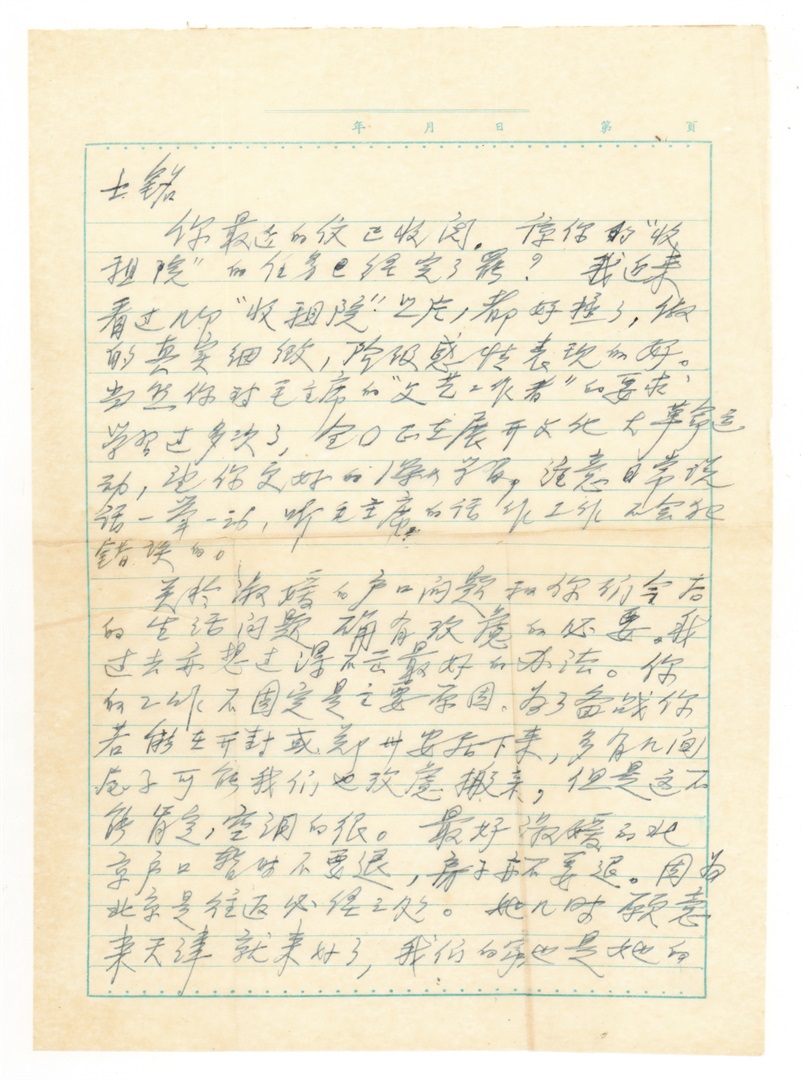 年 月 日 第 页
士铭
你最近的信已收阅。谅你的"收
租院"的任务已经完了罢？我近来
看过几份"收租院"照片，都好极了，做
的真实细微，阶级感情表现的好。
当然你对毛主席的"文艺工作者"的要求，
学习过多次了，全国正在展开文化大革命运
动，望你更好的学习。注意日常说
话一举一动，听毛主席的话作工作不会犯
错误的。
关于淑媛的户口问题和你们今后
的生活问题确有考虑的必要。我
过去亦想过得不出最好的办法。你
的工作不固定是主要原因。为了备战你
若能在开封或郑州安居下来，多有几间
房子可能我们也考虑搬来，但是这不
能肯定，空洞的很。最好淑媛的北
京户口暂时不要退，房子亦不要退。因为
北京是往返必经之处。她几时愿意
来天津就来好了，我们的家也是她的